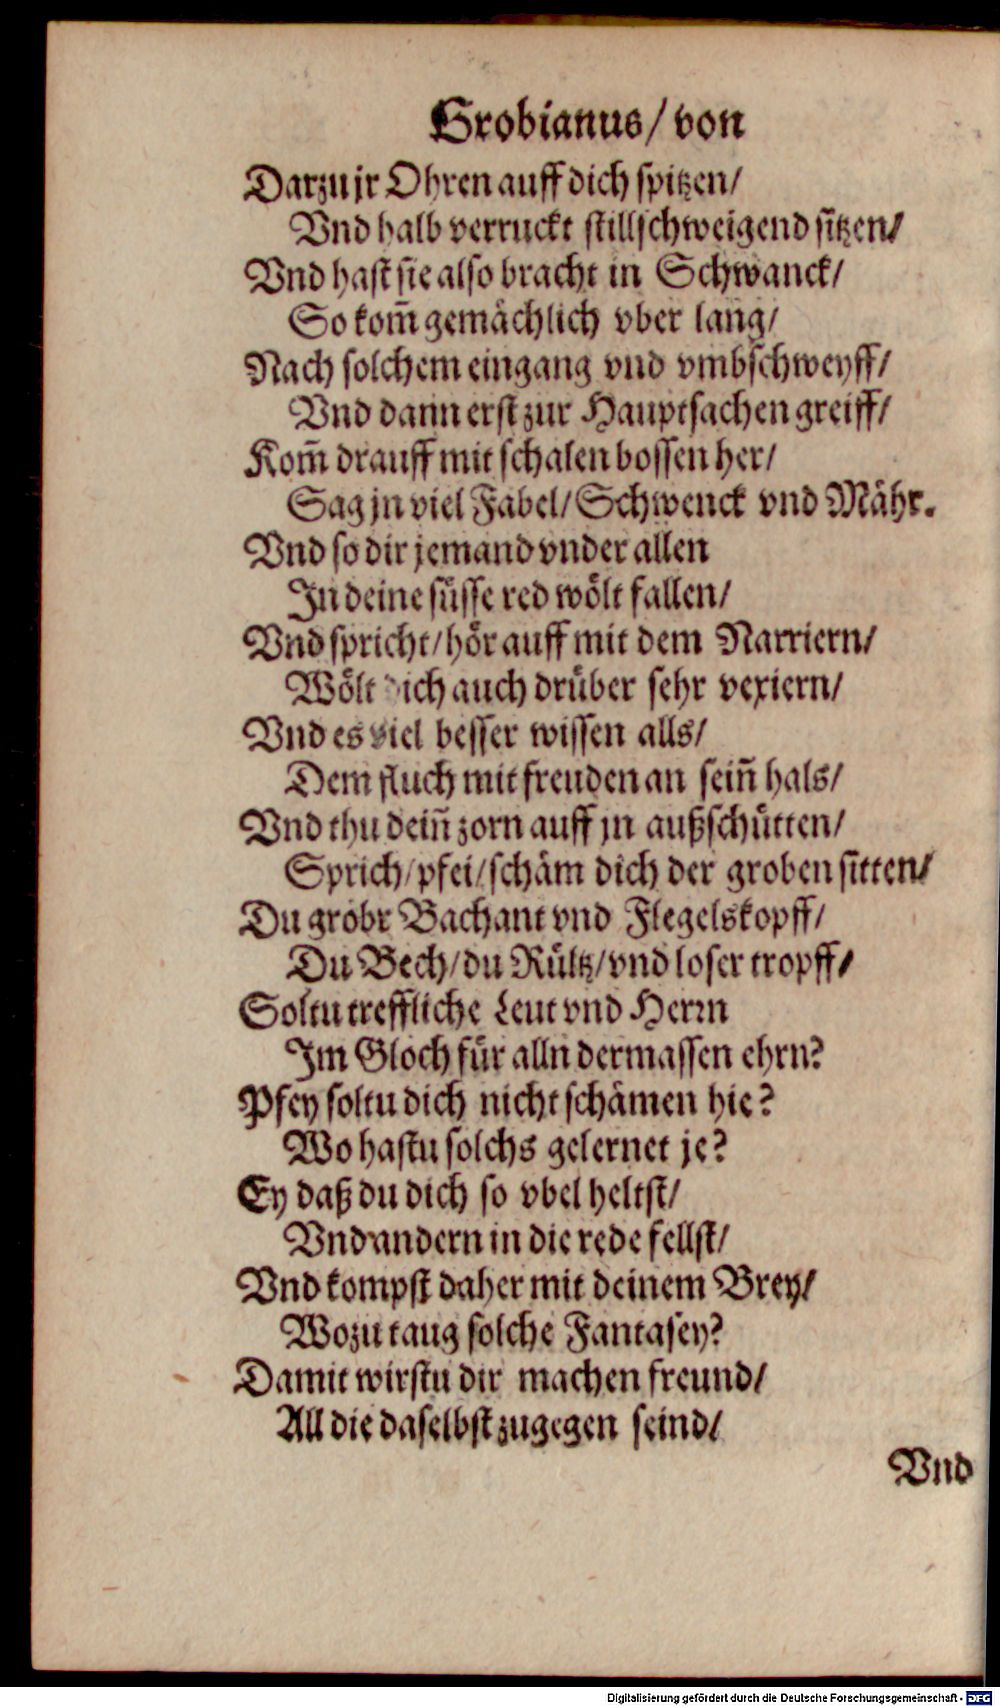 Grobianus/ von
Darzu jr Ohren auff dich spitzen/
Vnd halb verruckt stillschweigend sitzen/
Vnd hast sie also bracht in Schwanck/
So kom̃ gemächlich vber lang/
Nach solchem eingang vnd vmbschweyff/
Vnd dann erst zur Hauptsachen greiff/
Kom̃ drauff mit schalen bossen her/
Sag jn viel Fabel/ Schwenck vnd Mähr.
Vnd so dir jemand vnder allen
In deine süsse red wölt fallen/
Vnd spricht/ hör auff mit dem Narriern/
Wölt dich auch drüber sehr vexiern/
Vnd es viel besser wissen alls/
Dem fluch mit freuden an seiñ hals/
Vnd thu deiñ zorn auff jn außschütten/
Sprich/ pfei/ schäm dich der groben sitten/
Du grobr Bachant vnd Flegelskopff/
Du Bech/ du Rültz/ vnd loser tropff/
Soltu treffliche Leut vnd Herrn
Im Gloch für alln dermassen ehrn?
Pfey soltu dich nicht schämen hie?
Wo hastu solchs gelernet je?
Ey daß du dich so vbel heltst/
Vnd andern in die rede fellst/
Vnd kompst daher mit deinem Brey/
Wozu taug solche Fantasey?
Damit wirstu dir machen freund/
All die daselbst zugegen seind/
Vnd
Digitalisierung gefördert durch die Deutsche Forschungsgemeinschaft - DFG